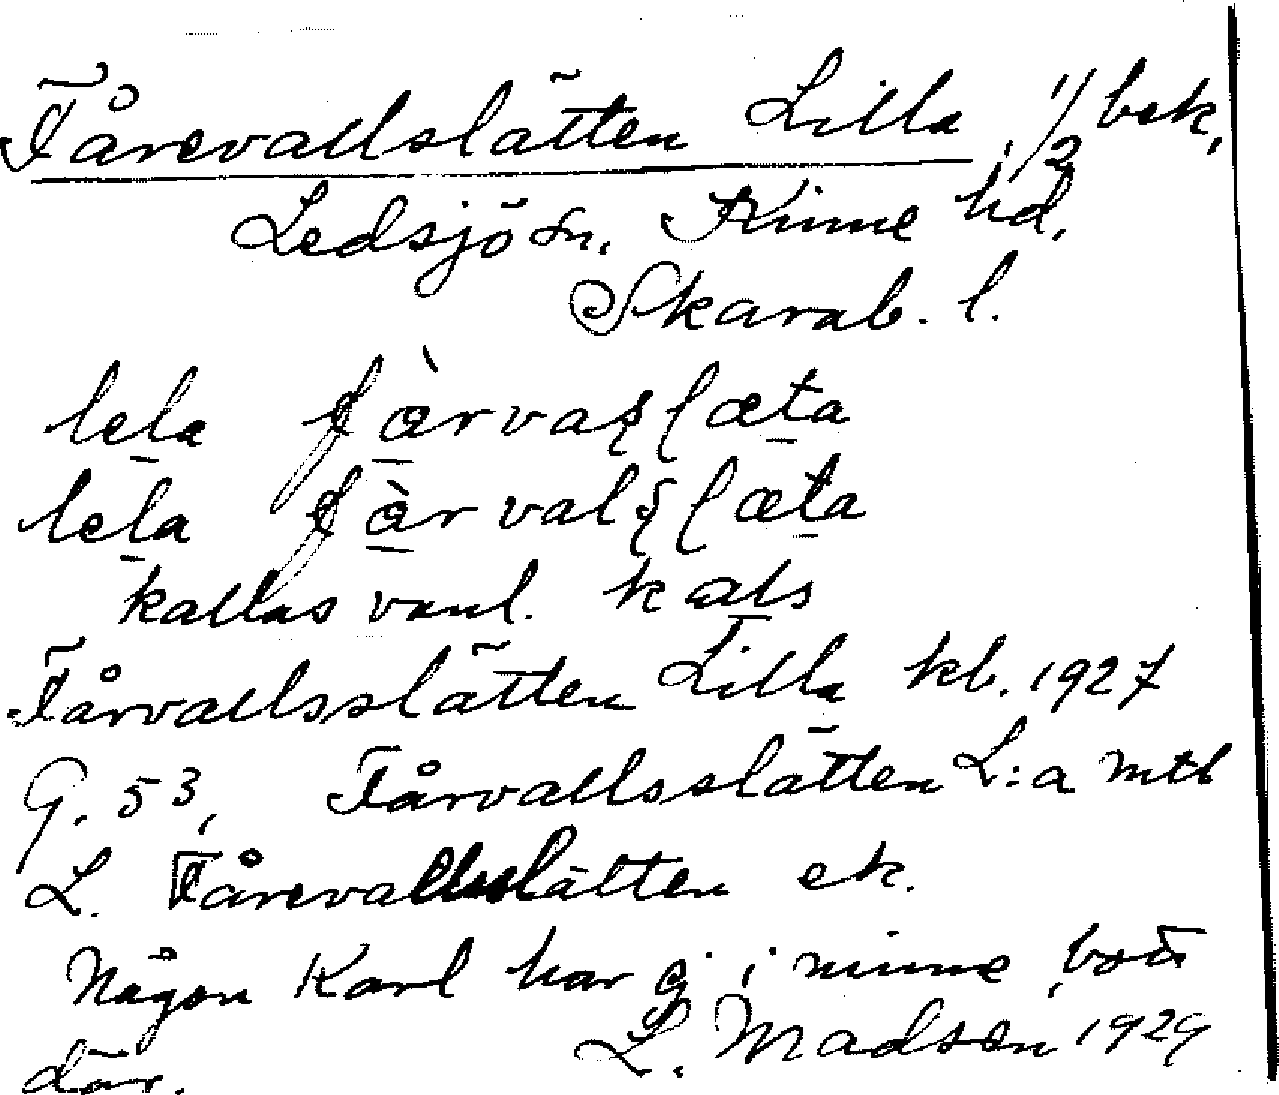 Fårevallslätten Lilla, 1/2 bsk,
Ledsjö sn. Kinne hd,
Skarab. l.
lela fàrvaʂʃæta
lela fàrvalʂʃæta
kallas vanl. kals
Fårvallsslätten Lilla kb. 1927
G. 53, Fårvallsslätten L:a mtl
L. Fårevallsslätten ek.
Någon Karl har ej i minne bott
där. L. Madsen 1929